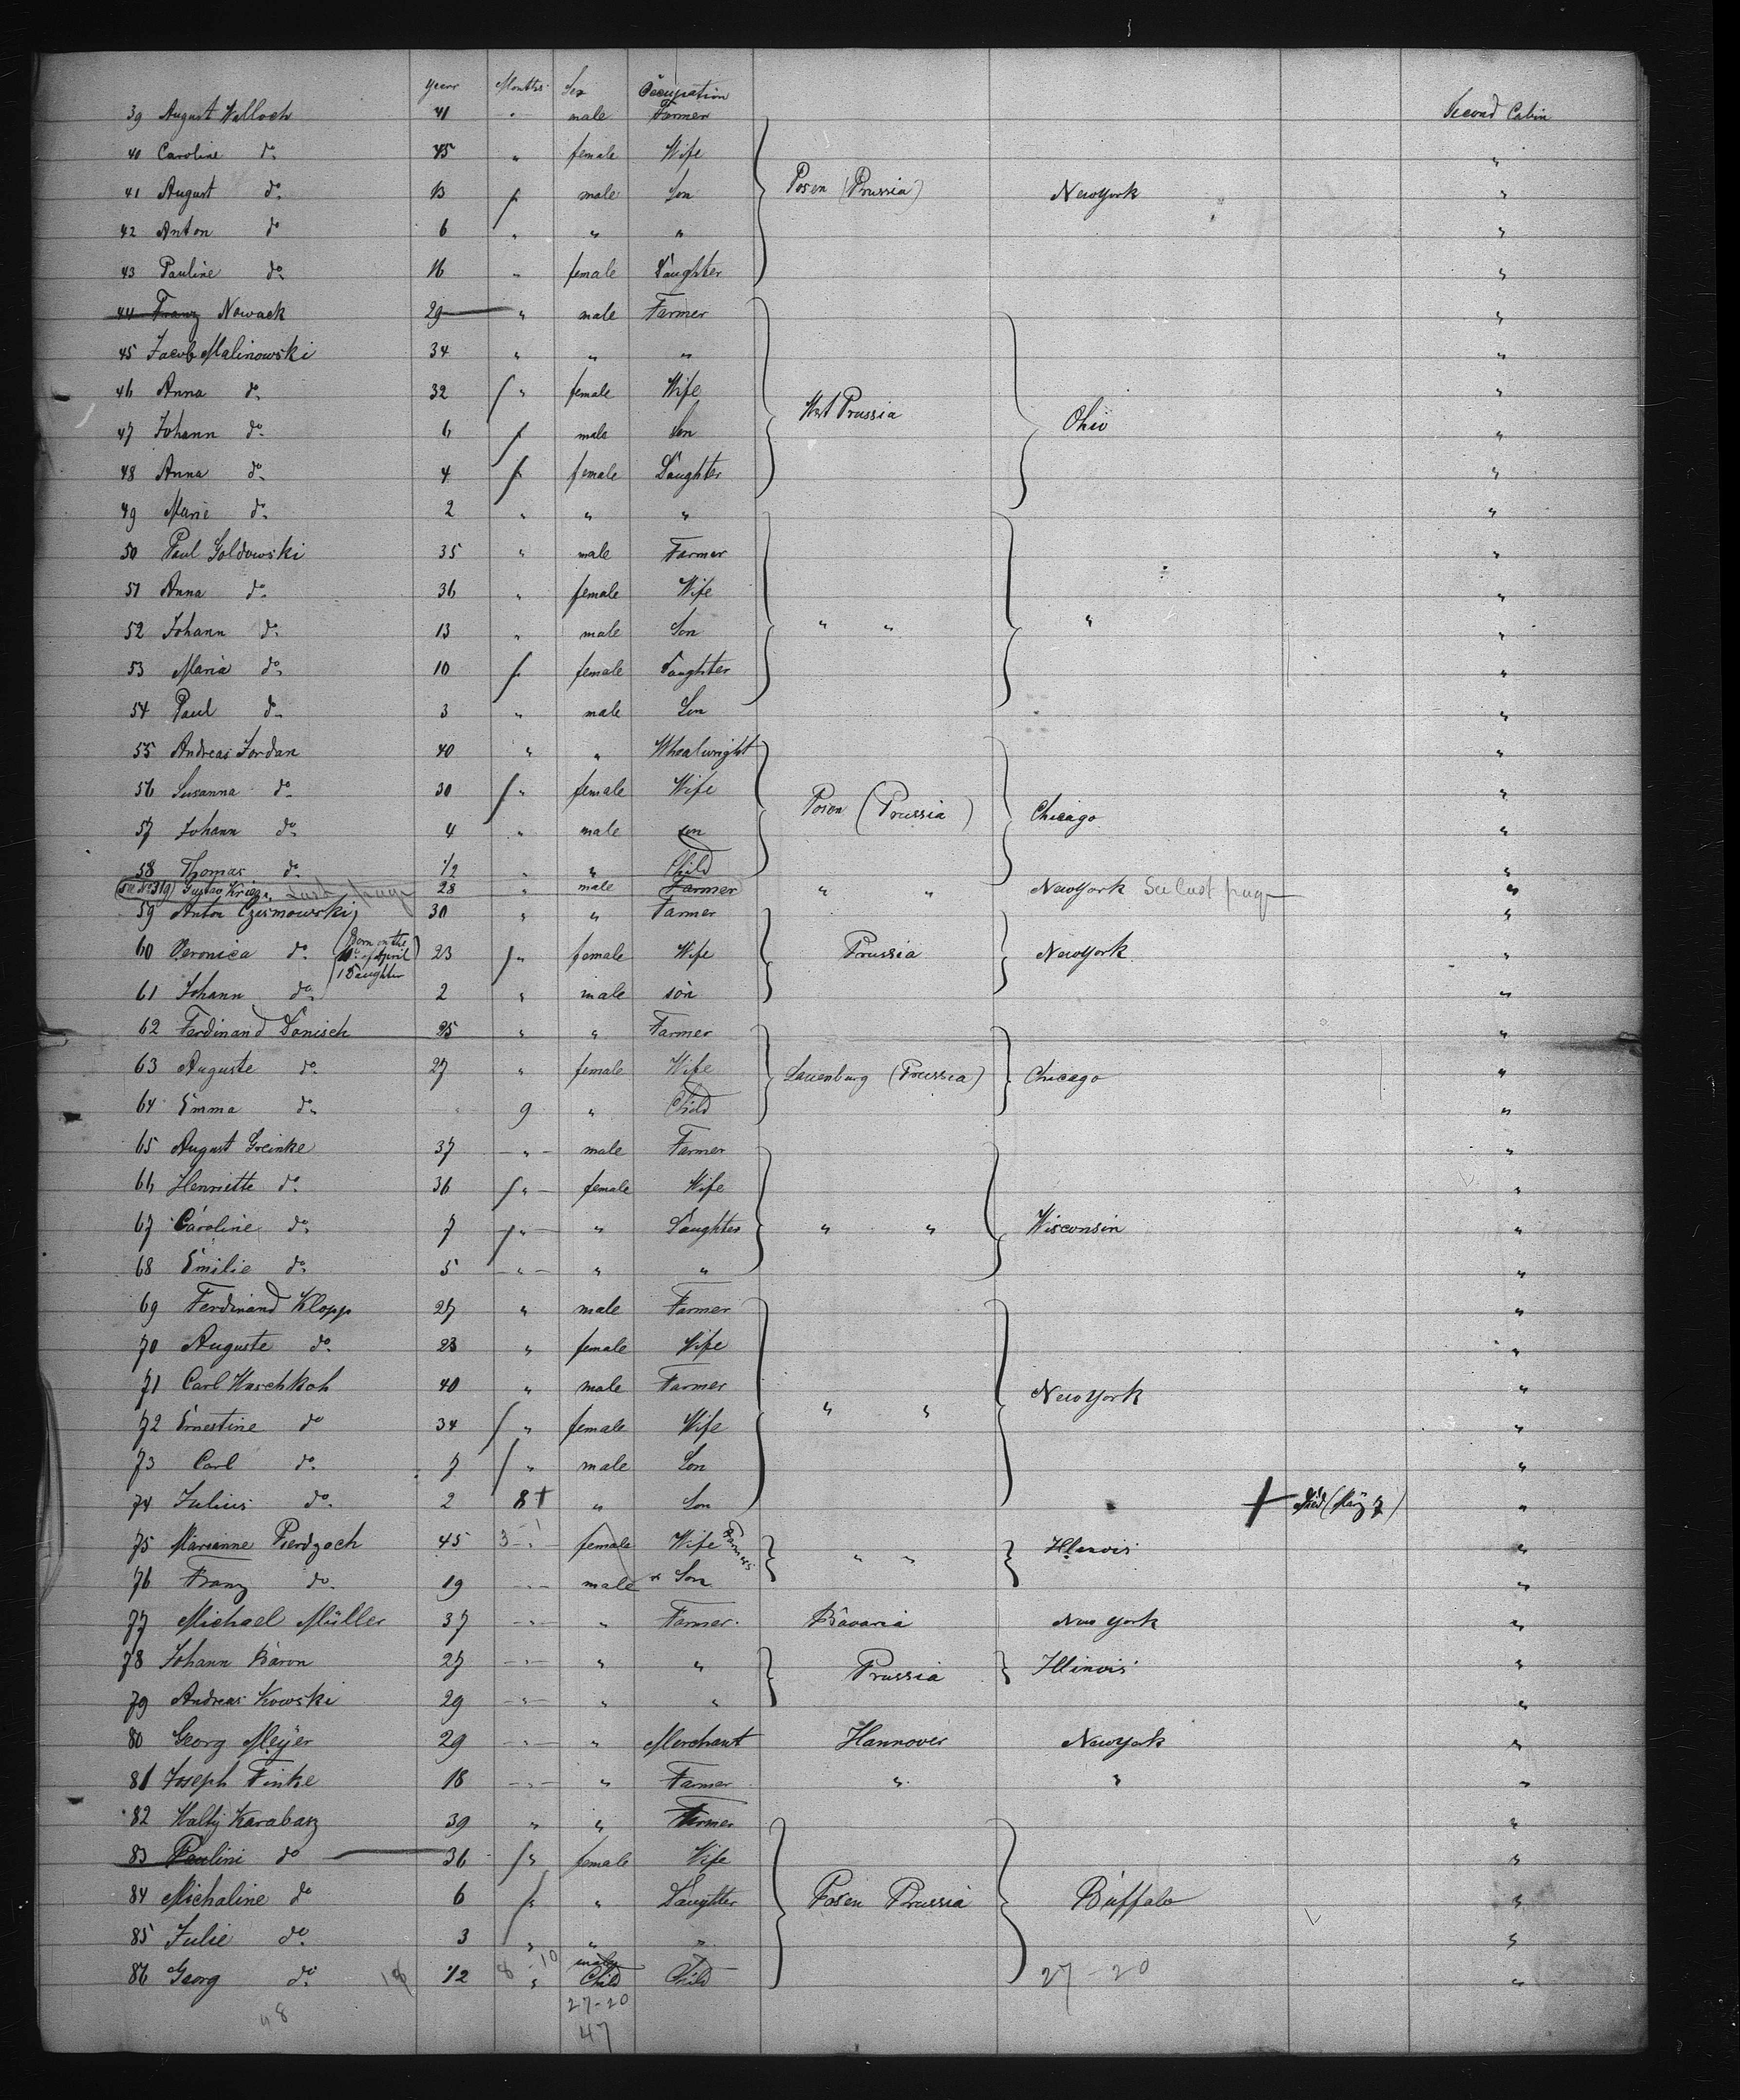 Year Months Sex Occupation
39 August Walloch 41 " male Farmer Second Cabin
40 Caroline do. 45 " female Wife "
41 August do. 13 male Son Posen (Prussia) New York "
42 Anton do 6 " " " "
43 Pauline do. 16 " female Daughter "
44 Franz Nowack 29 " male Farmer "
45 Jacob Malinowski 34 " " " "
46 Anna do. 32 " female Wife West Prussia Ohio "
47 Johann do. 6 male Son "
48 Anna do. 4 female Daughter "
49 Marie do. 2 " " " "
50 Paul Goldowski 35 " male Farmer "
51 Anna do. 36 " female Wife "
52 Johann do. 13 " male Son " " " "
53 Maria do. 10 female Daughter "
54 Paul do. 3 " male Son "
55 Andreas Jordan 40 " " Whealwright "
56 Susanna do. 30 " female Wife Posen (Prussia) Chicago "
57 Johann do. 4 " male son "
58 Thomas do. 1/2 " " Child "
See No 319 Gustav Last page 28 " male Farmer " " New York See last page "
59 Anton 30 " " Farmer "
60 Veronica do. (Born on the April 1 Daughter) 23 " female Wife Prussia New York "
61 Johann do. 2 " male son "
62 Ferdinand Donisch 25 " " Farmer "
63 Auguste do. 27 " female Wife Lauenburg (Prussia) Chicago "
64 Emma do. 9 " Child "
65 August Greinke 37 " male Farmer "
66 Henriette do. 36 " female Wife "
67 Caroline do. 7 " " Daughter " " Wisconsin "
68 Emilie do. 5 " " " "
69 Ferdinand Klopp 27 " male Farmer "
70 Auguste do. 23 " female Wife "
71 Carl Waschkoh 40 " male Farmer " " New York "
72 Ernestine do 34 " female Wife "
73 Carl do. 7 " male Son "
74 Julius do. 2 8 + " Son + died (May 7) "
75 Marianne Pierdzoch 45 3 " female Wife " " Illinois "
76 Franz do. 19 " male Son "
77 Michael Müller 37 " " Farmer. Bavaria New York "
78 Johann Baron 27 " " " Prussia Illinois "
79 Andreas Kowski 29 " " " "
80 Georg Meÿer 29 " " Merchant Hannover New York "
81 Joseph Finke 18 " " Farmer " " "
82 Karabasz 39 " " Farmer "
83 Paulini do 36 " female Wife "
84 Michaline do 6 " " Daughter Posen Prussia Buffalo "
85 Julie do. 3 " " " "
86 Georg do. 18 1/2 8 - 10 " Child Child 27 - 20 "
48 27-20
47